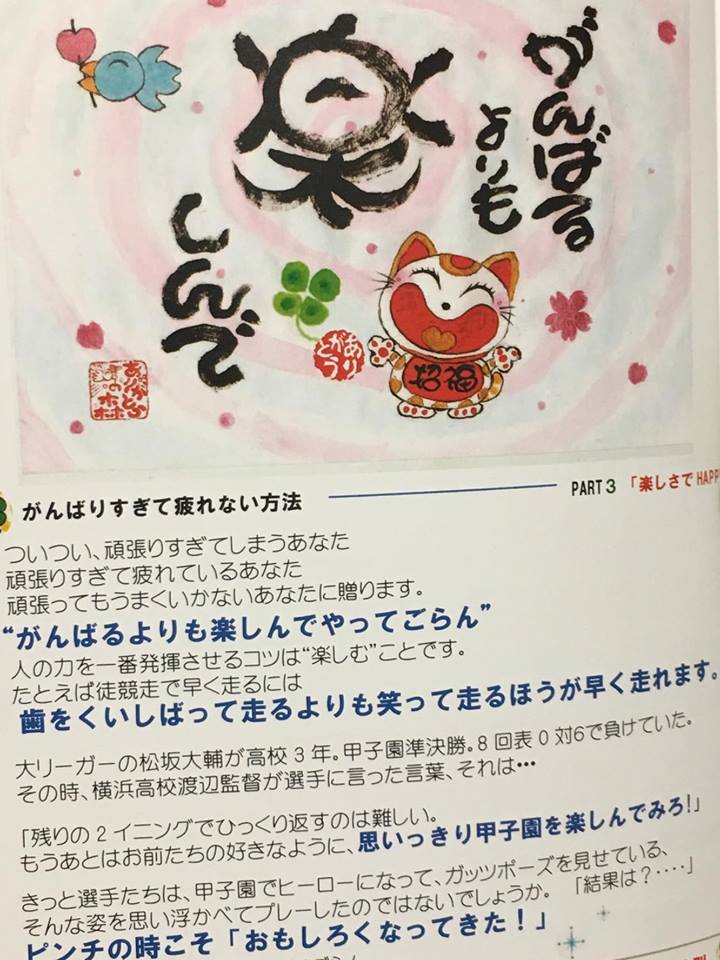 がんばる
よりも
楽
しんで
ありがとう
招福
がんばりすぎて疲れない方法
PART3 「楽しさでHAPP
ついつい、頑張りすぎてしまうあなた
頑張りすぎて疲れているあなた
頑張ってもうまくいかないあなたに贈ります。
“がんばるよりも楽しんでやってごらん”
人の力を一番発揮させるコツは“楽しむ”ことです。
たとえば徒競走で早く走るには
歯をくいしばって走るよりも笑って走るほうが早く走れます。
大リーガーの松坂大輔が高校3年。甲子園準決勝。8回表0対6で負けていた。
その時、横浜高校渡辺監督が選手に言った言葉、それは・・・
「残りの2イニングでひっくり返すのは難しい。
もうあとはお前たちの好きなように、思いっきり甲子園を楽しんでみろ!」
きっと選手たちは、甲子園でヒーローになって、ガッツポーズを見せている、
そんな姿を思い浮かべてプレーしたのではないでしょうか。 「結果は?‥‥」
ピンチの時こそ「おもしろくなってきた!」